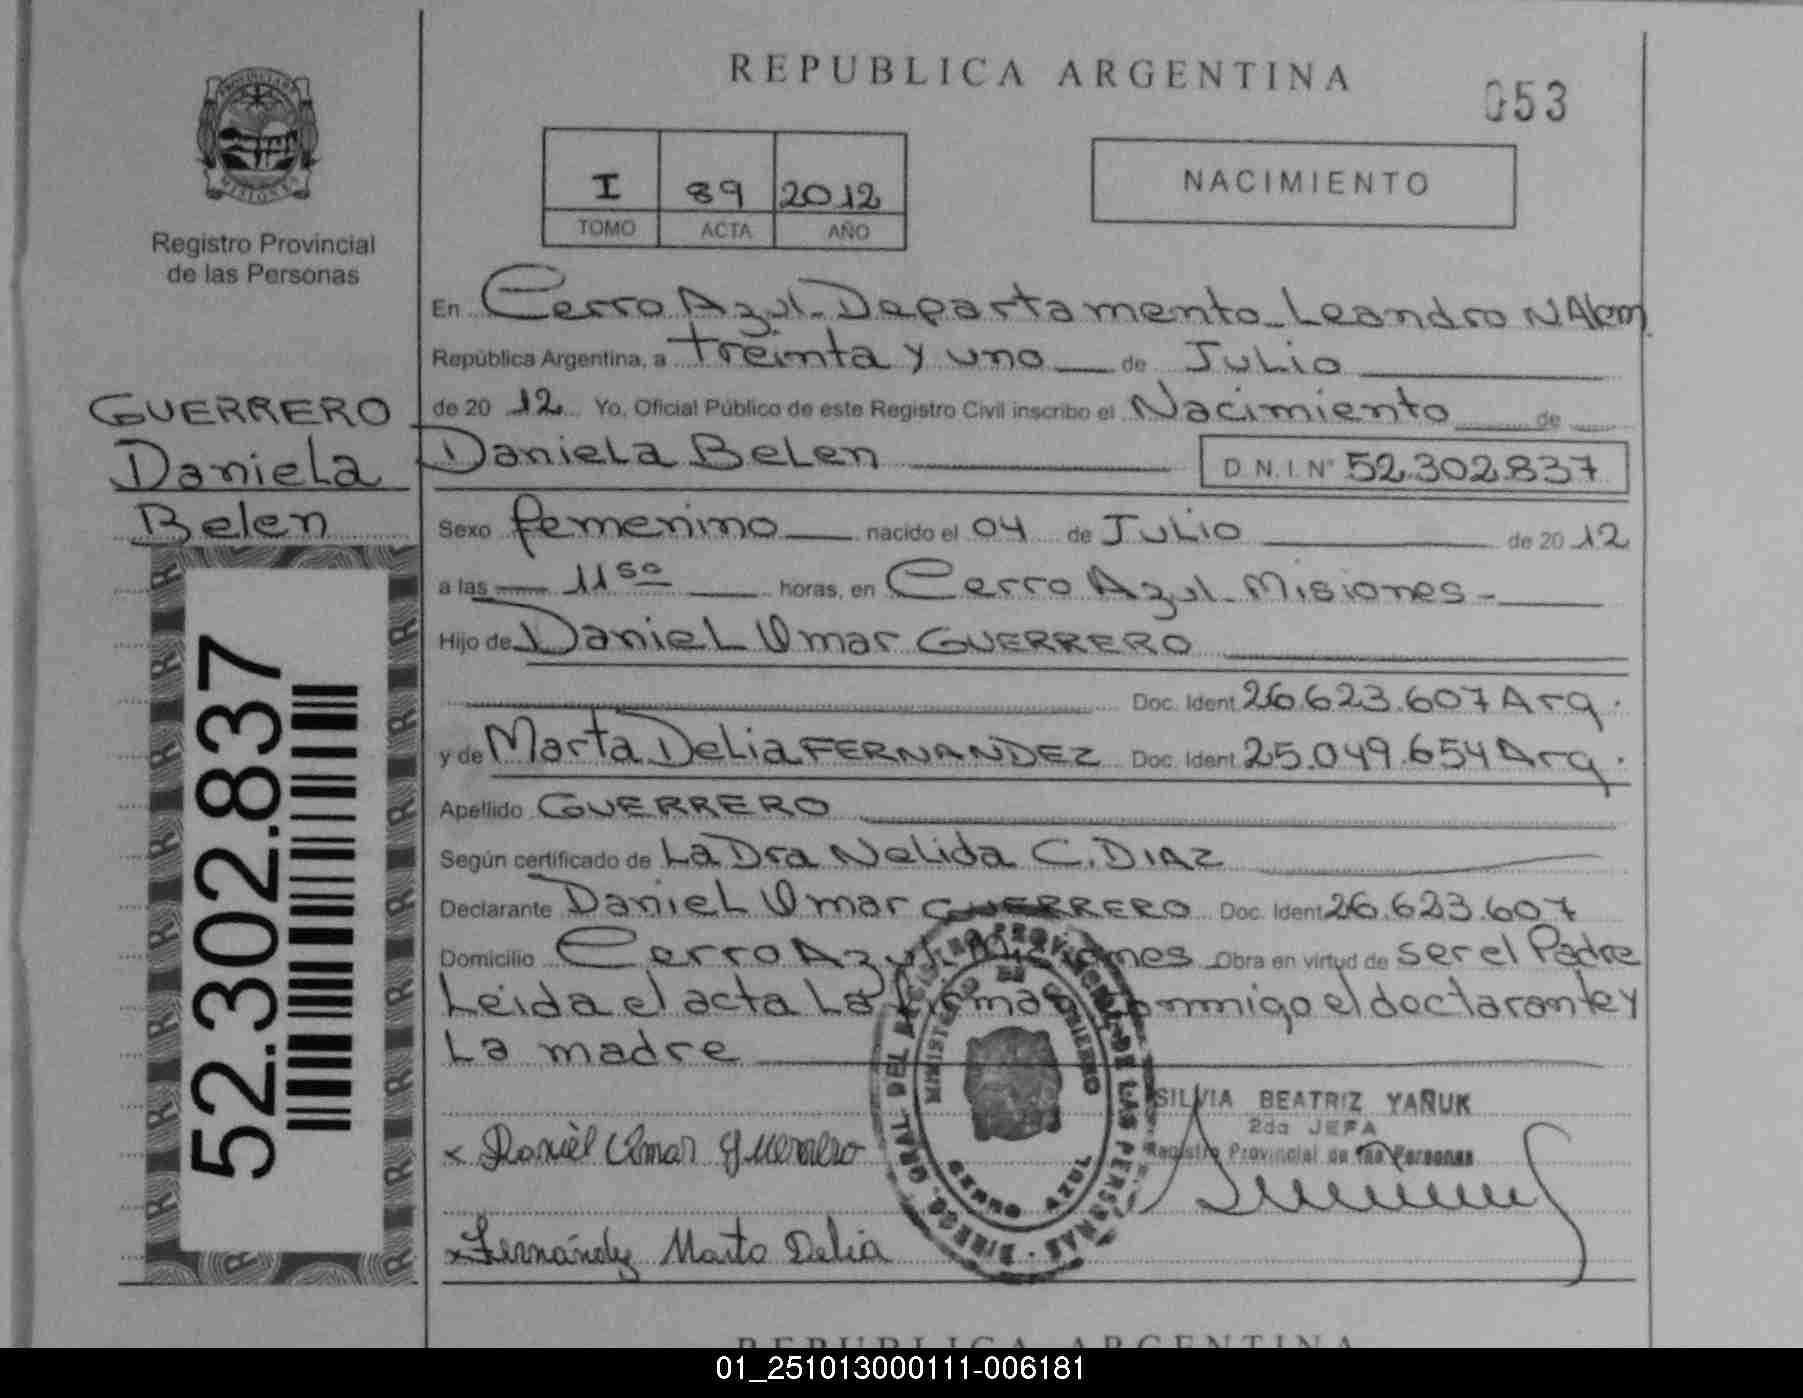 REPUBLICA ARGENTINA
053
PROVINCIA DE
MISIONES
Registro Provincial
de las Personas
I 89 2012
TOMO ACTA AÑO
NACIMIENTO
En Cerro Azul - Departamento - Leandro N Alem
República Argentina, a treinta y uno de Julio
de 20 12 Yo, Oficial Público de este Registro Civil inscribo el Nacimiento de
Daniela Belen D.N.I. N° 52.302.837
GUERRERO
Daniela
Belen
Sexo femenino nacido el 04 de Julio de 20 12
a las 11 50 horas, en Cerro Azul - Misiones -
Hijo de Daniel Omar GUERRERO
Doc. Ident. 26.623.607 Arg.
y de Marta Delia FERNANDEZ Doc. Ident. 25.049.654 Arg.
Apellido GUERRERO
Según certificado de La Dra Nelida C. DIAZ
Declarante Daniel Omar GUERRERO Doc. Ident. 26.623.607
Domicilio Cerro Azul Misiones Obra en virtud de ser el Padre
Leida el acta La firman conmigo el declarante y
La madre
52.302.837
SILVIA BEATRIZ YAÑUK
2da JEFA
Registro Provincial de las Personas
x Daniel Omar Guerrero
x Fernández Marta Delia
DIREC. GRAL. DEL REGISTRO PROVINCIAL DE LAS PERSONAS
MINISTERIO DE GOBIERNO
CERRO AZUL
REPUBLICA ARGENTINA
01_251013000111-006181